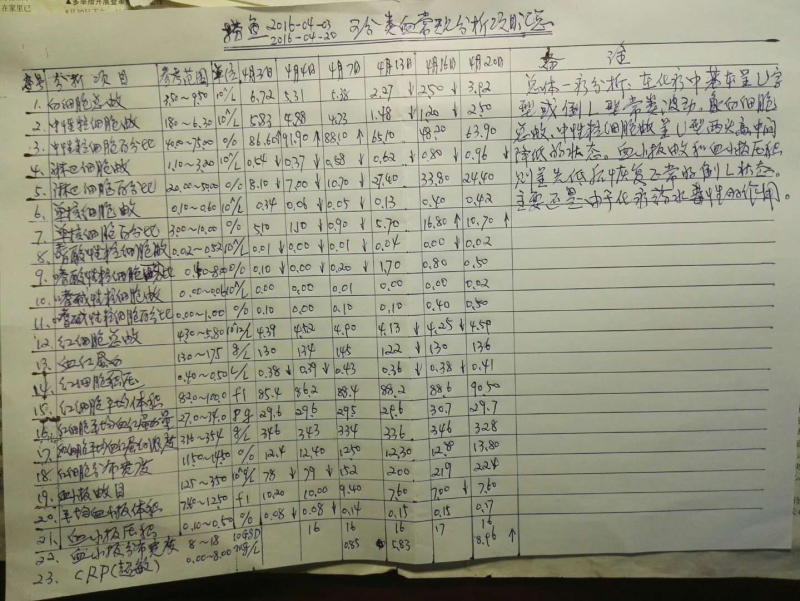 2016-04-03
2016-04-20 五分类血常规分析项目汇总
序号 分析项目 参考范围 单位 4月3日 4月4日 4月7日 4月13日 4月16日 4月20日 备注
1. 白细胞总数 3.50~9.50 10^9/L 6.72 5.31 5.38 2.27↓ 2.50↓ 3.92
2. 中性粒细胞数 1.80~6.30 10^9/L 5.83 4.88 4.73 1.48↓ 1.20↓ 2.50
3. 中性粒细胞百分比 40.00~75.00 % 86.60↑ 91.90↑ 88.10↑ 65.10 48.20 63.90
4. 淋巴细胞数 1.10~3.20 10^9/L 0.54↓ 0.37↓ 0.58↓ 0.62↓ 0.80↓ 0.96↓
5. 淋巴细胞百分比 20.00~50.00 % 8.10↓ 7.00↓ 10.70↓ 27.40 33.80 24.40
6. 单核细胞数 0.10~0.60 10^9/L 0.34 0.06↓ 0.05↓ 0.13 0.40 0.42
7. 单核细胞百分比 3.00~10.00 % 5.10 1.10↓ 0.90↓ 5.70 16.80↑ 10.70↑
8. 嗜酸性粒细胞数 0.02~0.52 10^9/L 0.01↓ 0.00↓ 0.01↓ 0.04 0.00↓ 0.02
9. 嗜酸性粒细胞百分比 % 0.10↓ 0.00↓ 0.20↓ 1.70 0.80 0.50
10. 嗜碱性粒细胞数 0.00~0.06 10^9/L 0.00 0.00 0.01 0.00 0.00 0.02
11. 嗜碱性粒细胞百分比 0.00~1.00 % 0.10 0.00 0.10 0.10 0.40 0.50
12. 红细胞总数 4.30~5.80 10^12/L 4.39 4.52 4.90 4.13↓ 4.25↓ 4.59
13. 血红蛋白 130~175 g/L 130 134 145 122↓ 130 136
14. 红细胞压积 0.40~0.50 L/L 0.38↓ 0.39↓ 0.43 0.36↓ 0.38↓ 0.41
15. 红细胞平均体积 82.0~100.0 fl 85.4 86.2 88.4 88.2 88.6 90.50
16. 红细胞平均血红蛋白量 27.0~34.0 pg 29.6 29.6 29.5 29.6 30.7 29.7
17. 红细胞平均血红蛋白浓度 316~354 g/L 346 343 334 336 346 328
18. 红细胞分布宽度 11.50~14.50 % 12.4 12.40 12.50 12.30 12.40 13.80
19. 血小板数目 125~350 10^9/L 78↓ 79↓ 152 200 219 224
20. 平均血小板体积 7.40~12.50 fl 10.20 10.00 9.40 7.60 7.00↓ 7.60
21. 血小板压积 0.10~0.50 % 0.08↓ 0.08↓ 0.14 0.15 0.15 0.17
22. 血小板分布宽度 8~18 10GSD 16 16 16 17 16
23. CRP(超敏) 0.00~8.00 mg/L 0.85 5.83 8.96↑
总体一分分析,在化疗中基本呈U字
型或倒L型常态波动,最白细胞
总数、中性粒细胞数呈U型两头高中间
降低的状态。血小板数和血小板压积
则呈先低后恢复正常的倒L状态。
主要还是由于化疗药水毒性的作用。